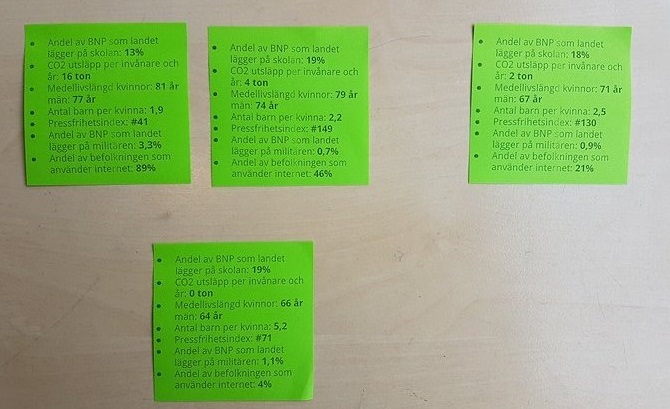 Andel av BNP som landet
lägger på skolan: 13%
CO2 utsläpp per invånare och
år: 16 ton
Medellivslängd kvinnor: 81 år
män: 77 år
Antal barn per kvinna: 1,9
Pressfrihetsindex: #41
Andel av BNP som landet
lägger på militären: 3,3%
Andel av befolkningen som
använder internet: 89%
Andel av BNP som landet
lägger på skolan: 19%
CO2 utsläpp per invånare och
år: 4 ton
Medellivslängd kvinnor: 79 år
män: 74 år
Antal barn per kvinna: 2,2
Pressfrihetsindex: #149
Andel av BNP som landet
lägger på militären: 0,7%
Andel av befolkningen som
använder internet: 46%
Andel av BNP som landet
lägger på skolan: 18%
CO2 utsläpp per invånare och
år: 2 ton
Medellivslängd kvinnor: 71 år
män: 67 år
Antal barn per kvinna: 2,5
Pressfrihetsindex: #130
Andel av BNP som landet
lägger på militären: 0,9%
Andel av befolkningen som
använder internet: 21%
Andel av BNP som landet
lägger på skolan: 19%
CO2 utsläpp per invånare och
år: 0 ton
Medellivslängd kvinnor: 66 år
män: 64 år
Antal barn per kvinna: 5,2
Pressfrihetsindex: #71
Andel av BNP som landet
lägger på militären: 1,1%
Andel av befolkningen som
använder internet: 4%